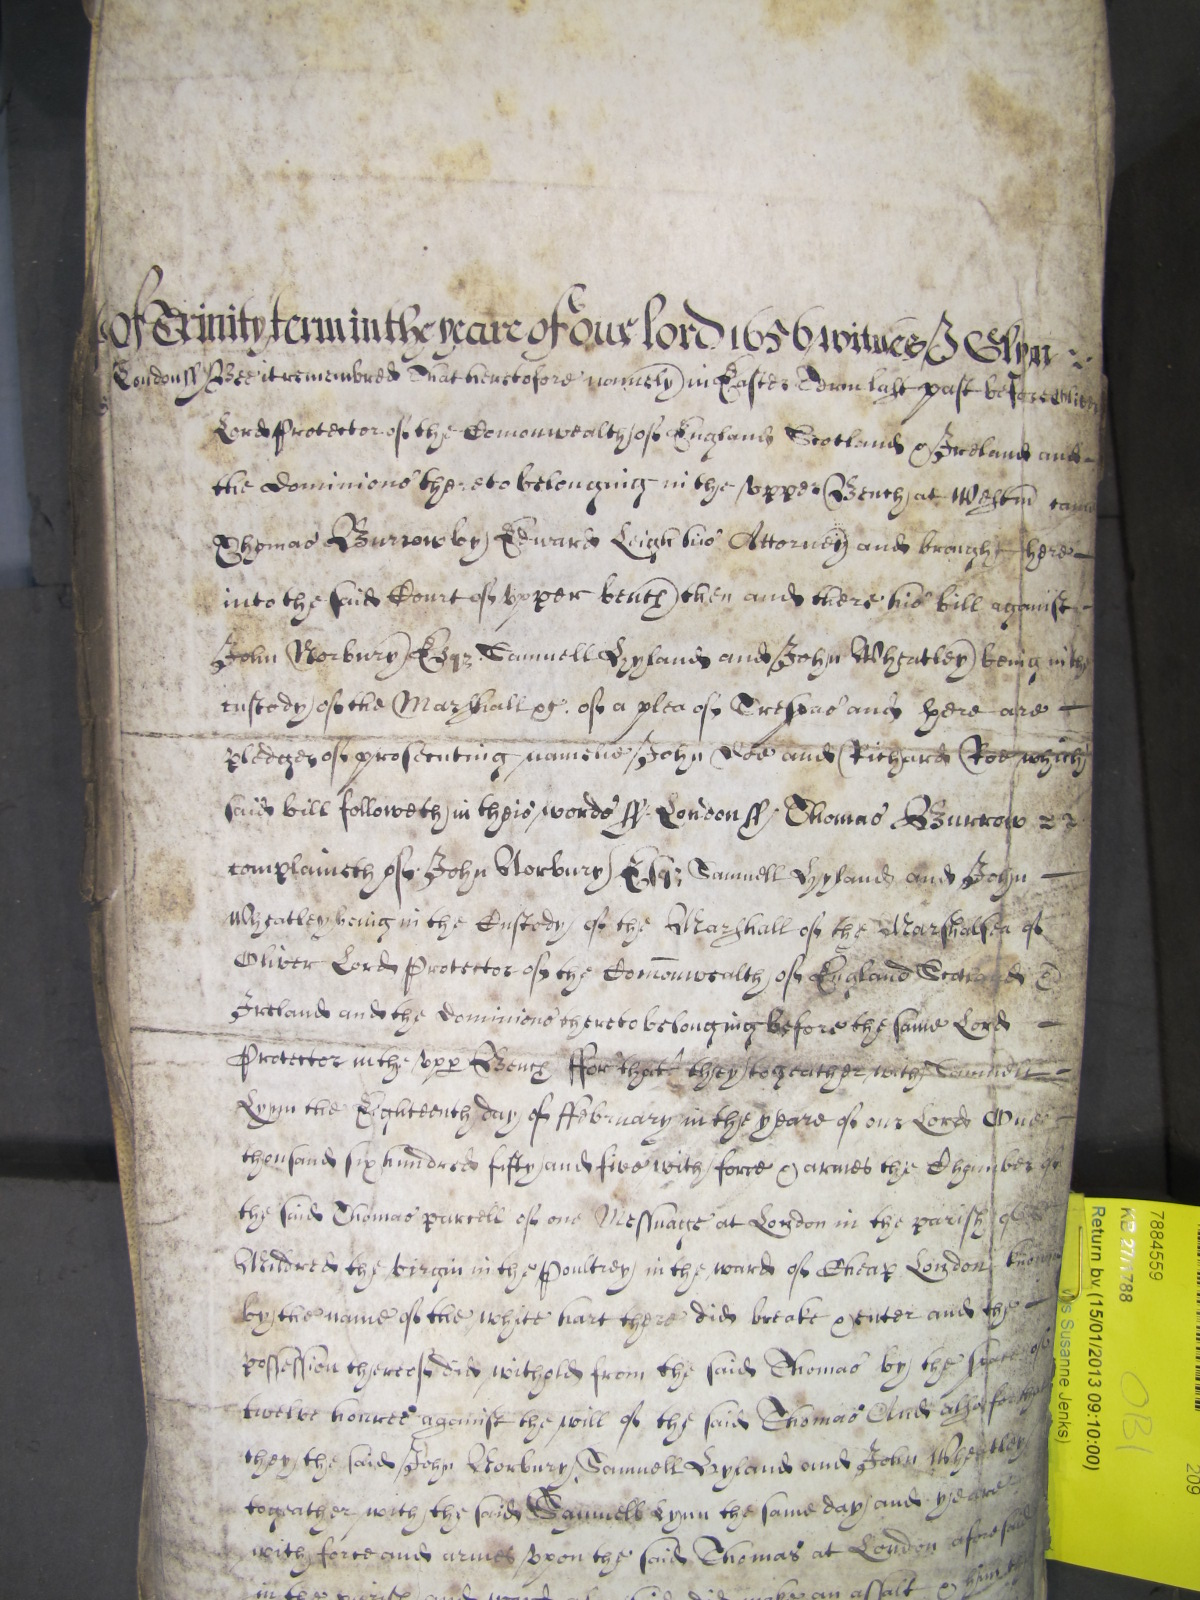 Of Trinity terme in the yeare of Our lord 1656 witnes J Glyn
London ss Bee it remembred That heretofore namely in Easter Terme last past before Oliver
Lord Protector of the Comonwealth of England Scotland & Ireland and
the dominions thereto belonging in the upper Bench at Westm came
Thomas Burrow by Edward Leigh his Attorney and brought here
into the said Court of upper bench then and there his bill against
John Norbury Esqr Samuell Hyland and John Wheatley being in the
custody of the Marshall &c. of a plea of Trespas and there are
pledges of prosecuting namelie John Doe and Richard Roe which
said bill followeth in theis words ss London ss Thomas Burrow
complaineth of John Norbury Esqr Samuell Hyland and John
Wheatley being in the Custody of the Marshall of the Marshalsea of
Oliver Lord Protector of the Comonwealth of England Scotland &
Ireland and the dominions thereto belonging before the same Lord
Protector in the upp Bench ffor that they togeather with Samuell
Lynn the Eighteenth day of ffebruary in the yeare of our Lord One
thousand six hundred fifty and five with force & armes the Chamber of
the said Thomas parcell of one Messuage at London in the parish of
Mildred the virgin in the Poultrey in the ward of Cheap London known
by the name of the white hart there did breake & enter and the
possession thereof did withold from the said Thomas by the space of
twelve houres against the will of the said Thomas And also for that
they the said John Norbury Samuell Hyland and John Wheatley
togeather with the said Samuell Lynn the same day and yeare
with force and armes upon the said Thomas at London aforesaid
in the parish and ward aforesaid did make an assalt & him
7884559
KB 27/1788
Return by (15/01/2013 09:10:00)
Susanne Jenks)
OBI
209